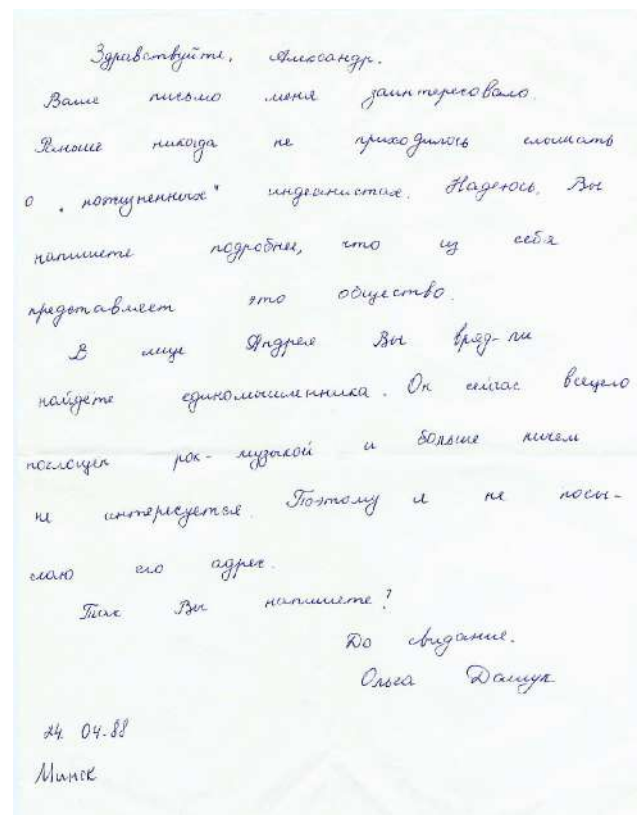 Здравствуйте, Александр.
Ваше письмо меня заинтересовало.
Раньше никогда не приходилось слышать
о "потусненных" индеанистах. Надеюсь, Вы
напишете подробнее, что из себя
представляет это общество.
В лице Андрея Вы вряд-ли
найдёте единомышленника. Он сейчас всецело
поглощен рок-музыкой и больше ничем
не интересуется. Поэтому я не посы-
лаю его адрес.
Так Вы напишете?
До свидание.
Ольга Дашук
24. 04.88
Минск